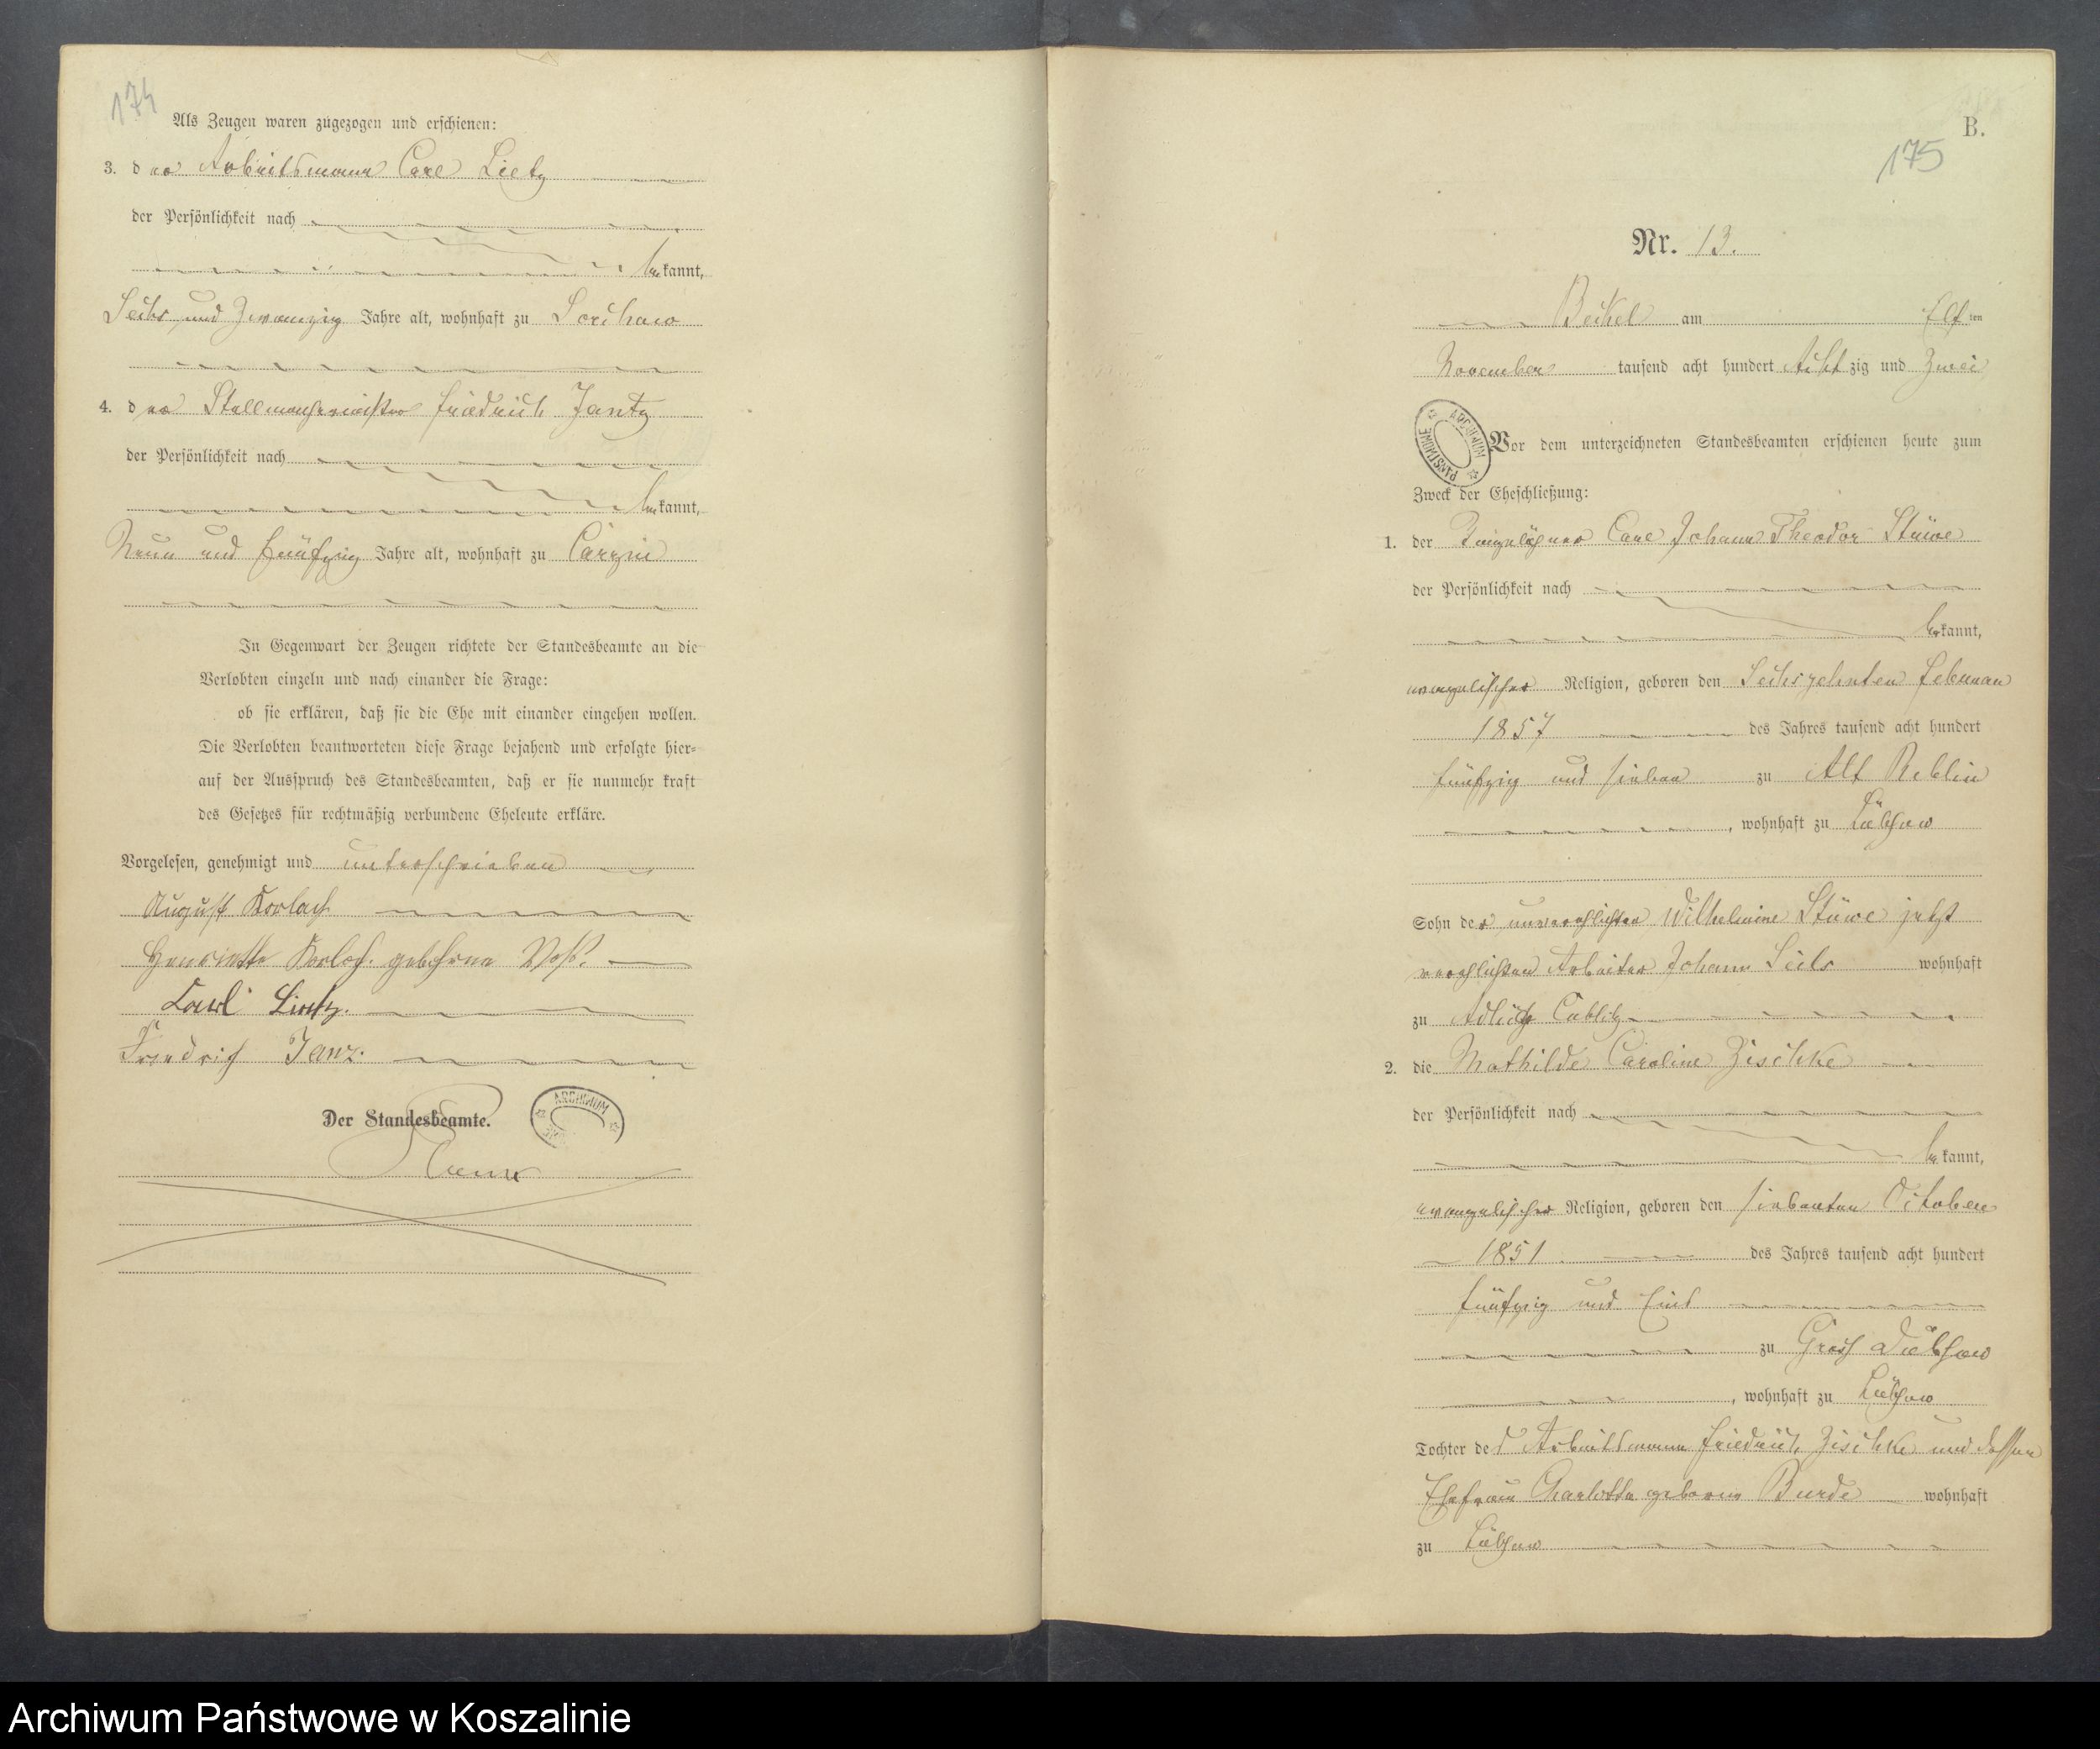 174
Als Zeugen waren zugezogen und erschienen:
3. der Arbeitsmann Carl Lietz
der Persönlichkeit nach
bekannt,
Sechs und Zwanzig Jahre alt, wohnhaft zu Sorchow
4. der Stellmachermeister Friedrich Jantz
der Persönlichkeit nach
bekannt,
Neun und fünfzig Jahre alt, wohnhaft zu Carzin
In Gegenwart der Zeugen richtete der Standesbeamte an die
Verlobten einzeln und nach einander die Frage:
ob sie erklären, daß sie die Ehe mit einander eingehen wollen.
Die Verlobten beantworteten diese Frage bejahend und erfolgte hier-
auf der Ausspruch des Standesbeamten, daß er sie nunmehr kraft
des Gesetzes für rechtmäßig verbundene Eheleute erkläre.
Vorgelesen, genehmigt und unterschrieben
August Korlach
Henriette geborene Voß.
Carl Lietz.
Friedrich Janz.
Der Standesbeamte.
ARCHIWUM
B.
175
Nr. 13.
Beckel am Elften
November tausend acht hundert Achtzig und Zwei
ARCHIWUM PAŃSTWOWE
Vor dem unterzeichneten Standesbeamten erschienen heute zum
Zweck der Eheschließung:
1. der Carl Johann Theodor Stüwe
der Persönlichkeit nach
bekannt,
evangelischer Religion, geboren den Sechszehnten Februar
1857 des Jahres tausend acht hundert
fünfzig und sieben zu Alt Reblin
, wohnhaft zu Lübzow
Sohn der unverehlichten Wilhelmine Stüwe jetzt
verehlichten Arbeiter Johann Siels wohnhaft
zu Adlich Cublitz
2. die Mathilde Caroline Zischke
der Persönlichkeit nach
bekannt,
evangelischer Religion, geboren den siebenten October
1851 des Jahres tausend acht hundert
fünfzig und Eins
zu Groß Dübsow
, wohnhaft zu Lübzow
Tochter des Arbeitsmann Friedrich Zischke und dessen
Ehefrau Charlotte geborene Burde wohnhaft
zu Lübzow
Archiwum Państwowe w Koszalinie